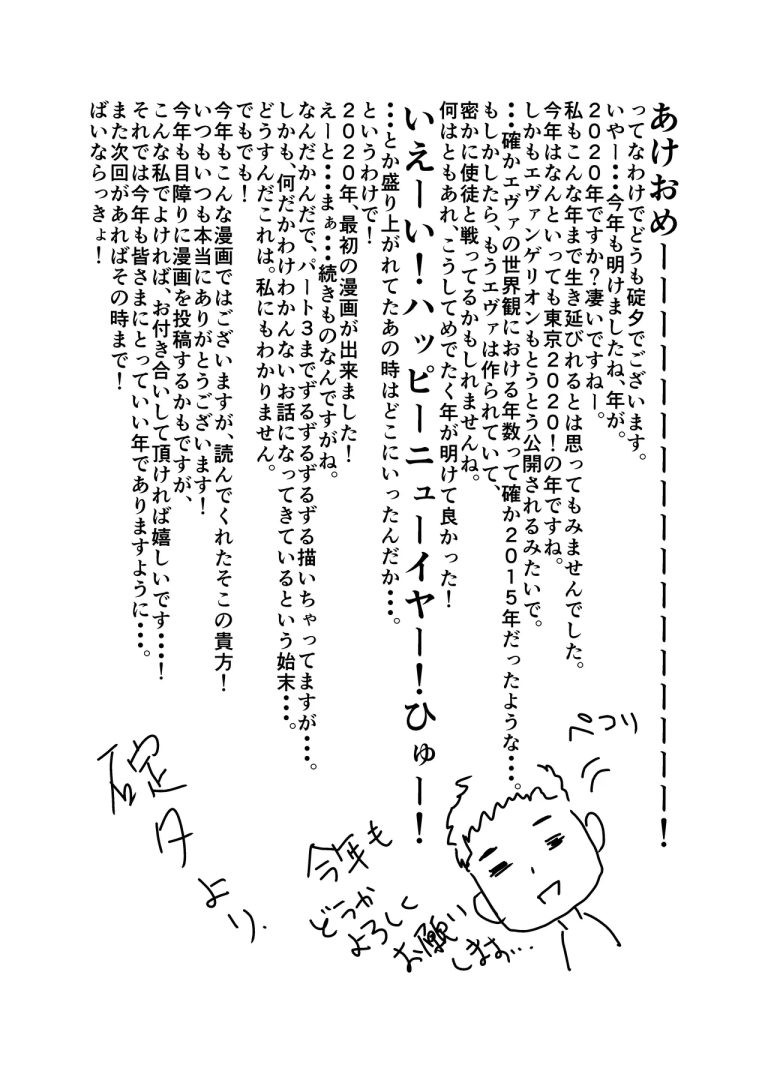 あけおめーーーーーーーーーーーーーーーーーー！
ってなわけでどうも碇夕でございます。
いやー・・・今年も明けましたね、年が。
２０２０年ですか？凄いですねー。
私もこんな年まで生き延びれるとは思ってもみませんでした。
今年はなんといっても東京２０２０！の年ですね。
しかもエヴァンゲリオンもとうとう公開されるみたいで。
・・・確かエヴァの世界観における年数って確か２０１５年だったような・・・。
もしかしたら、もうエヴァは作られていて、
密かに使徒と戦ってるかもしれませんね。
何はともあれ、こうしてめでたく年が明けて良かった！
いえーい！ハッピーニューイヤー！ひゅー！
・・・とか盛り上がれてたあの時はどこにいったんだか・・・。
というわけで！
２０２０年、最初の漫画が出来ました！
えーと・・・まぁ・・・続きものなんですがね。
なんだかんだで、パート３までずるずるずるずる描いちゃってますが・・・。
しかも、何だかわけわかんないお話になってきているという始末・・・。
どうすんだこれは。私にもわかりません。
でもでも！
今年もこんな漫画ではございますが、読んでくれたそこの貴方！
いつもいつも本当にありがとうございます！
今年も目障りに漫画を投稿するかもですが、
こんな私でよければ、お付き合いして頂ければ嬉しいです・・・！
それでは今年も皆さまにとっていい年でありますように・・・。
また次回があればその時まで！
ばいならっきょ！
ペコリ
今年も
どうか
よろしく
お願い
します…
碇夕より.